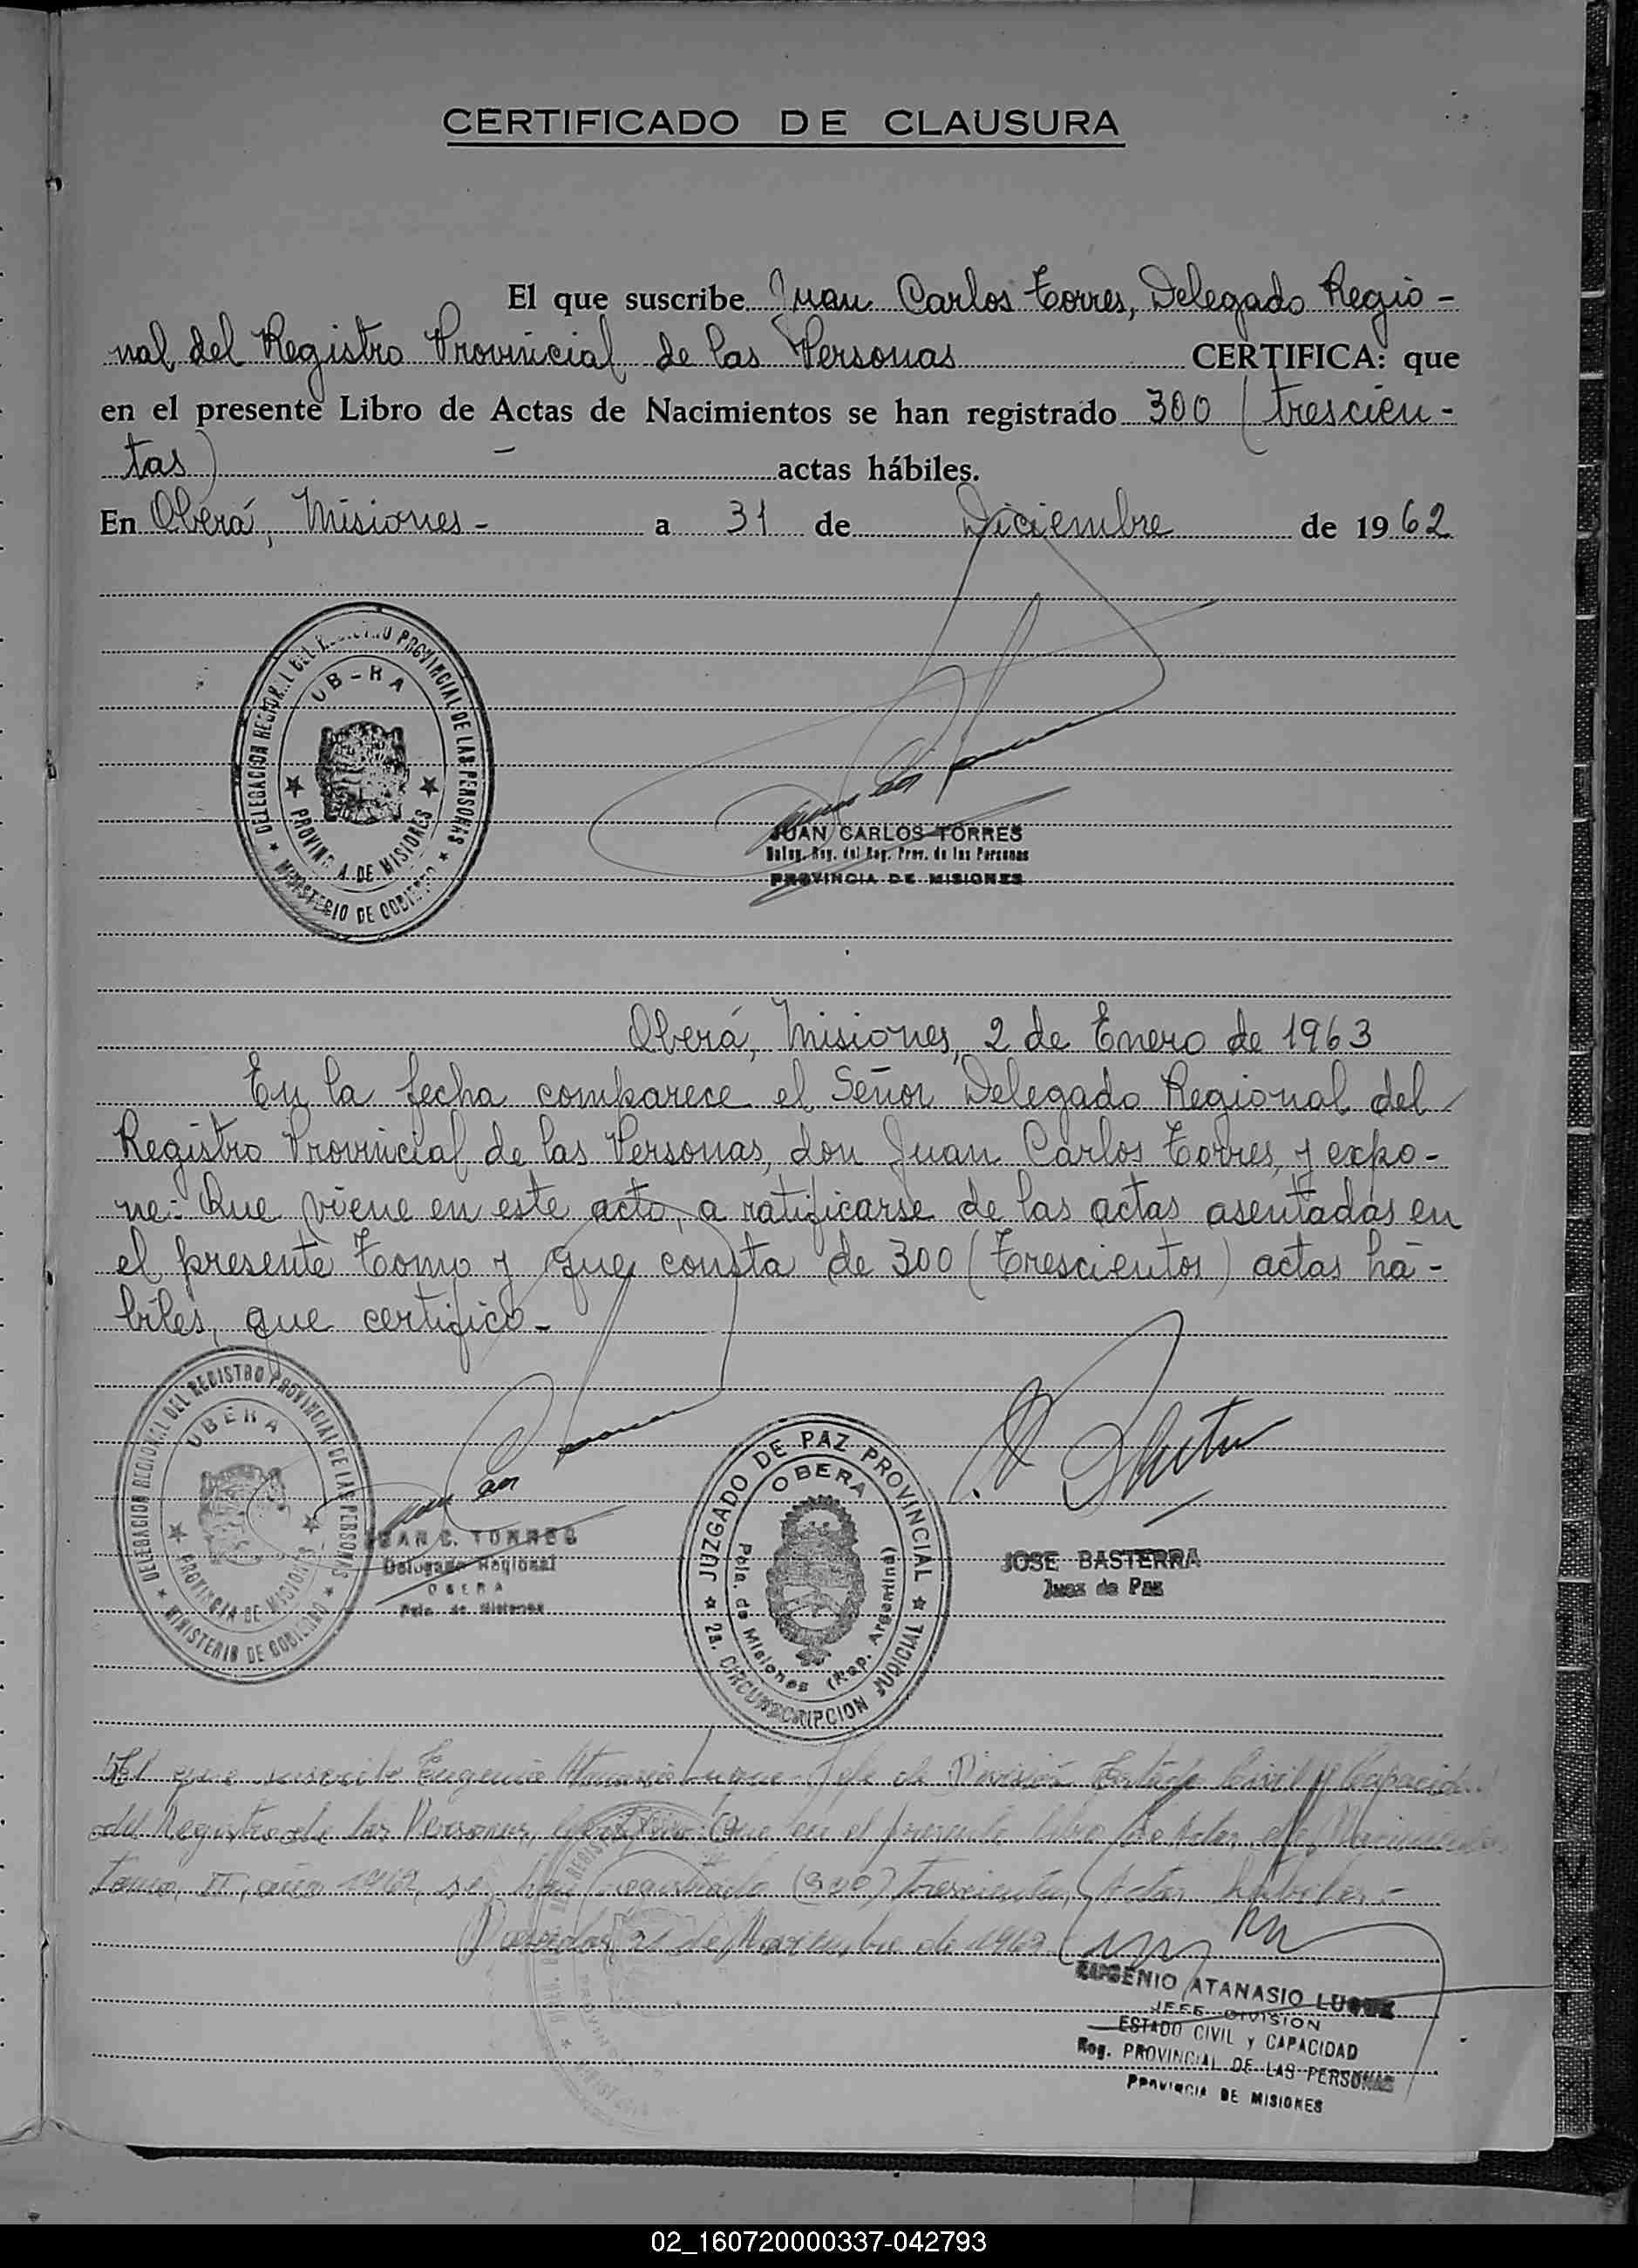 CERTIFICADO DE CLAUSURA
El que suscribe Juan Carlos Torres, Delegado Regio-
nal del Registro Provincial de las Personas CERTIFICA: que
en el presente Libro de Actas de Nacimientos se han registrado 300 (trescien-
tas) - actas hábiles.
En Oberá, Misiones - a 31 de Diciembre de 1962
DELEGACION DEL PROVINCIAL DE LAS PERSONAS
PROVINCIA DE MISIONES
MINISTERIO DE GOBIERNO
JUAN CARLOS TORRES
Deleg. Reg. del Reg. Prov. de las Personas
PROVINCIA DE MISIONES
Oberá, Misiones, 2 de Enero de 1963
En la fecha comparece el Señor Delegado Regional del
Registro Provincial de las Personas, don Juan Carlos Torres, y expo-
ne: Que viene en este acto, a ratificarse de las actas asentadas en
el presente Tomo y que consta de 300 (Trescientos) actas há-
biles, que certifico -
DELEGACION REGIONAL DEL REGISTRO PROVINCIAL DE LAS PERSONAS
OBERA
PROVINCIA DE MISIONES
MINISTERIO DE GOBIERNO
JUAN C. TORRES
Delegado Regional
OBERA
Pcia. de Misiones
JUZGADO DE PAZ PROVINCIAL
OBERA
Pcia. de Misiones (Rep. Argentina)
2a. CIRCUNSCRIPCION JUDICIAL
JOSE BASTERRA
Juez de Paz
El que suscribe Eugenio Atanasio Luque Jefe de División Estado Civil y Capacidad
del Registro de las Personas, Certifico: Que en el presente libro de Actas de Nacimientos
Tomo II, año 1962, se han registrado (300) trescientas, Actas hábiles.-
Posadas, de Noviembre de
EUGENIO ATANASIO LUQUE
JEFE DIVISION
ESTADO CIVIL y CAPACIDAD
Reg. PROVINCIAL DE LAS PERSONAS
PROVINCIA DE MISIONES
02_160720000337-042793